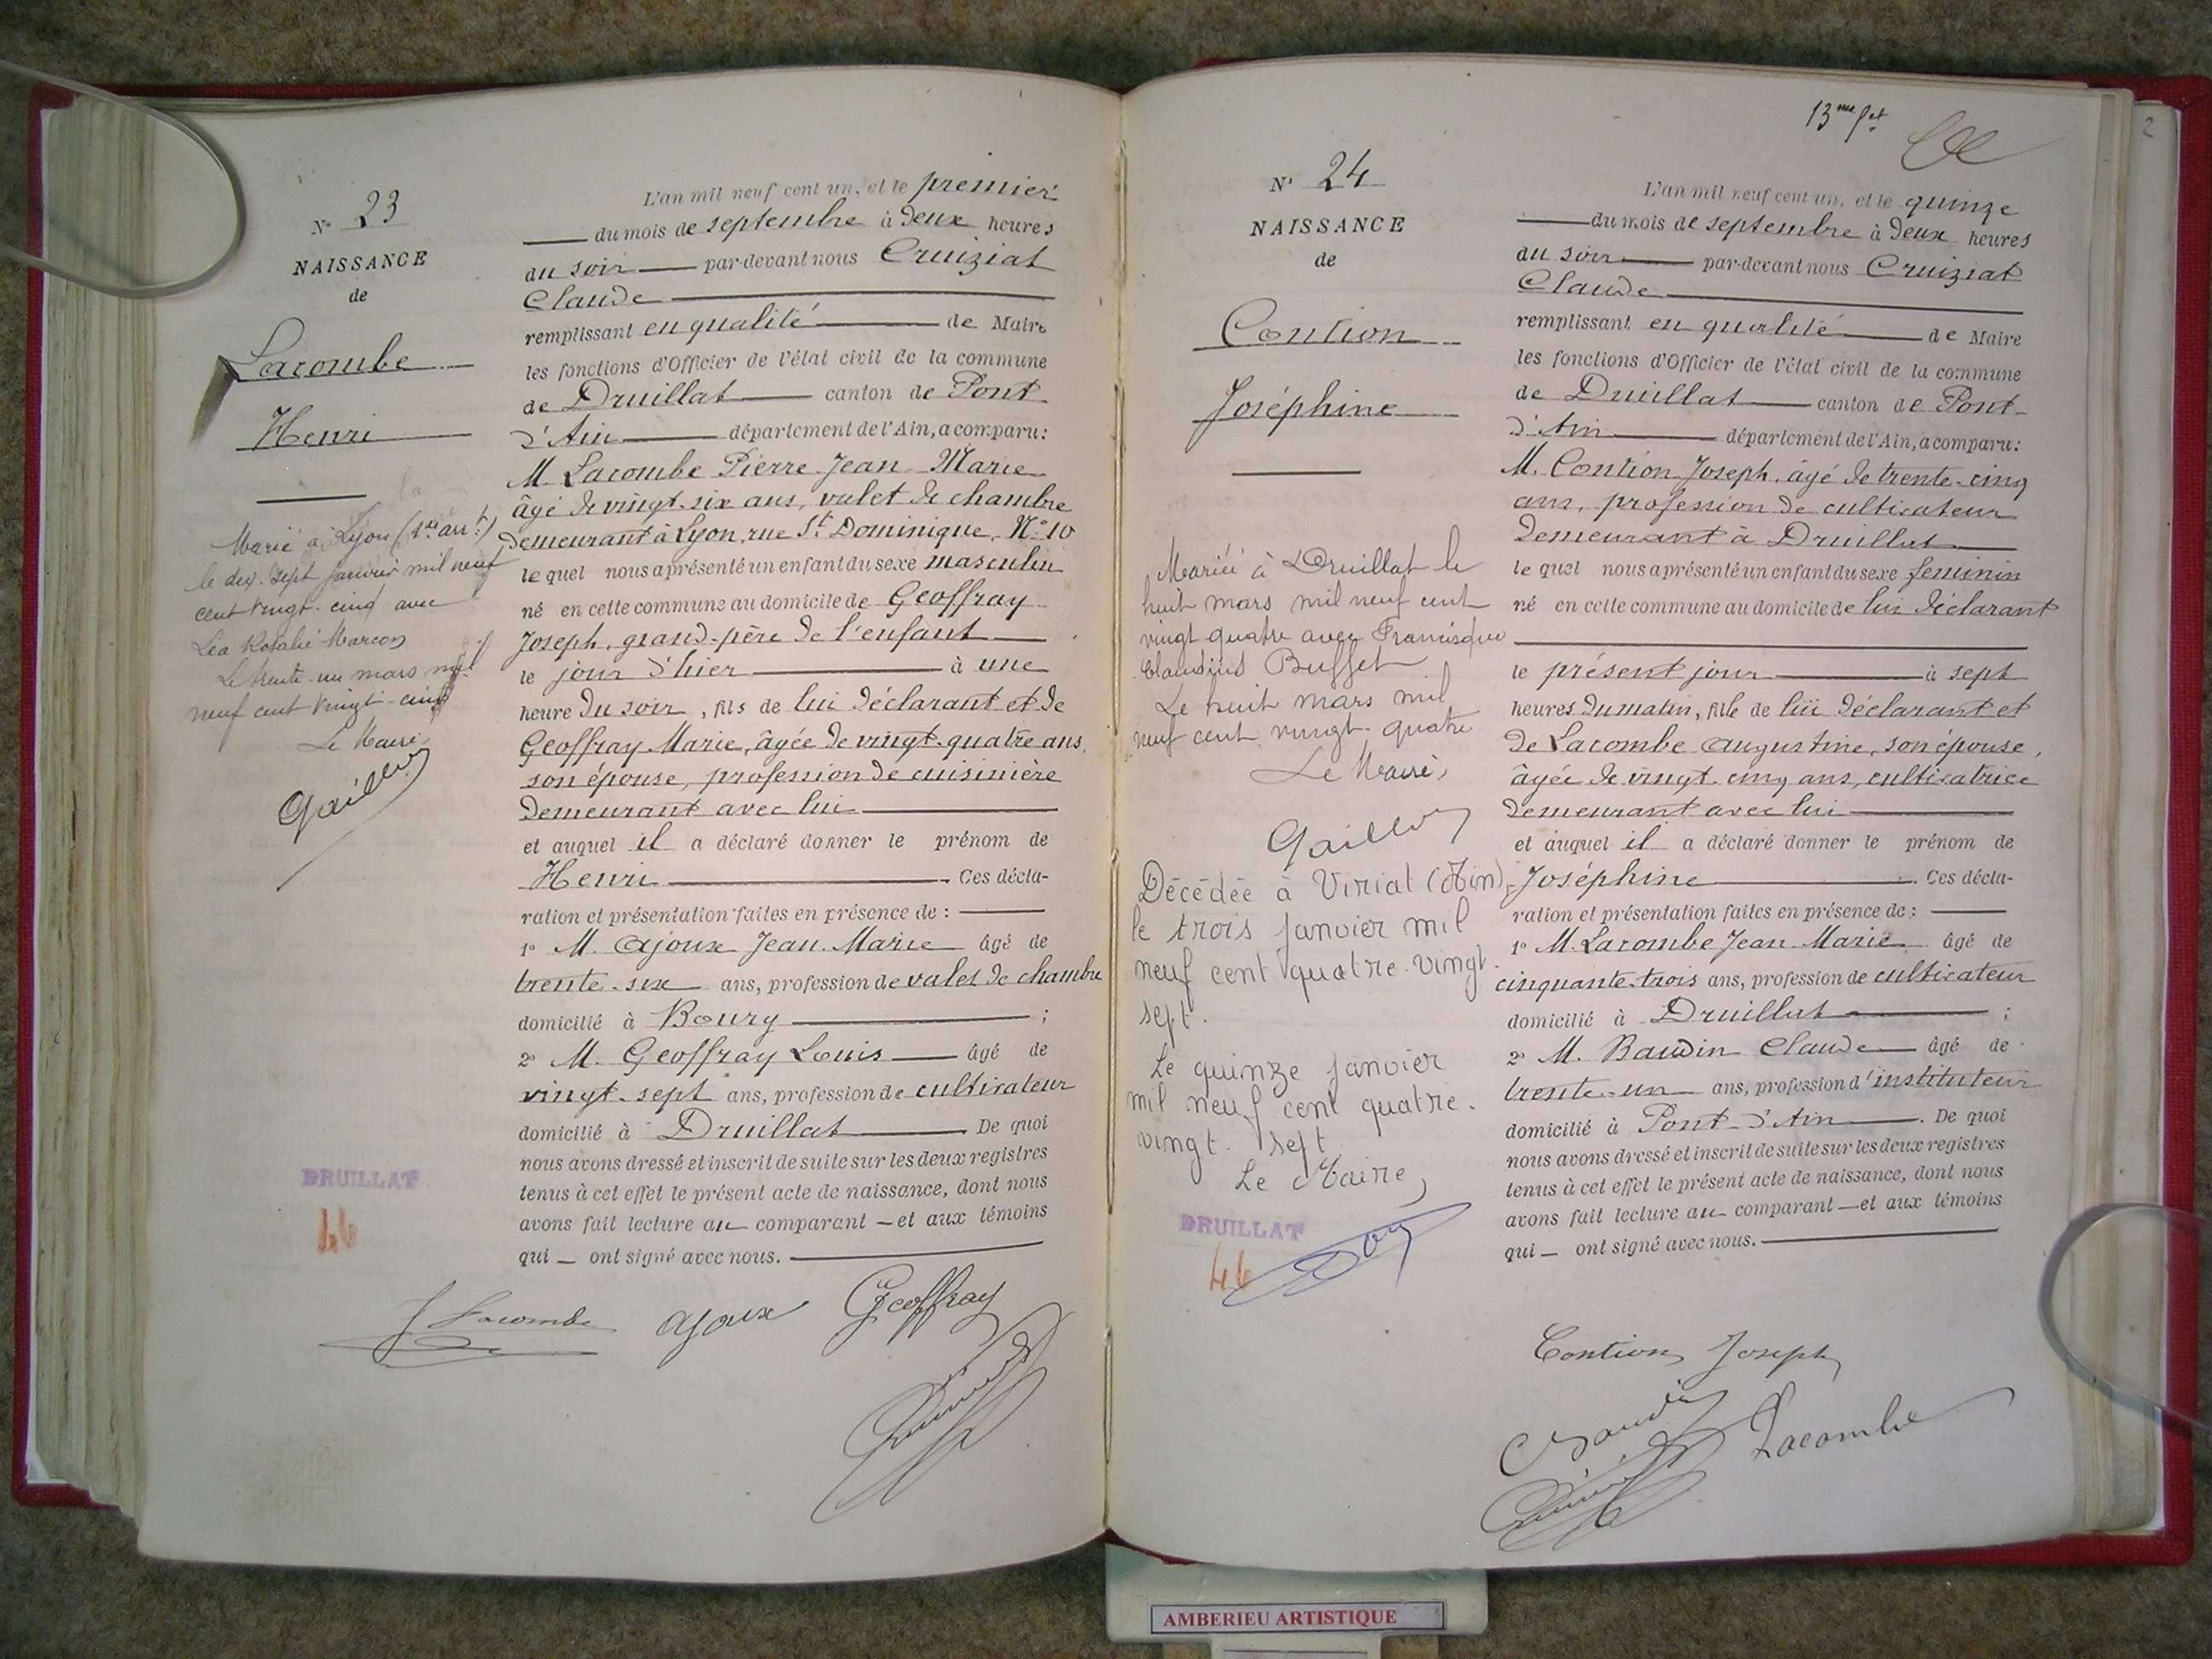 N° 23
NAISSANCE
de
Lacombe
Henri
Marié à Lyon (1er arrt)
le dix-sept janvier mil neuf
cent vingt-cinq avec
Léa Rosalie Marcon
Le trente-un mars mil
neuf cent vingt-cinq
Le Maire,
DRUILLAT
46
L'an mil neuf cent un, et le premier
du mois de septembre à deux heures
du soir par-devant nous Cruiziat
Claude
remplissant en qualité de Maire
les fonctions d'Officier de l'état civil de la commune
de Druillat canton de Pont
d'Ain département de l'Ain, a comparu:
M. Lacombe Pierre Jean Marie
âgé de vingt-six ans, valet de chambre
demeurant à Lyon, rue St Dominique, N° 10
le quel nous a présenté un enfant du sexe masculin
né en cette commune au domicile de Geoffray
Joseph, grand-père de l'enfant
le jour d'hier à une
heure du soir, fils de lui déclarant et de
Geoffray Marie, âgée de vingt-quatre ans,
son épouse, profession de cuisinière
demeurant avec lui
et auquel il a déclaré donner le prénom de
Henri. Ces décla-
ration et présentation faites en présence de:
1° M. Ajoux Jean Marie âgé de
trente-six ans, profession de valet de chambre
domicilié à Bourg;
2° M. Geoffray Louis âgé de
vingt-sept ans, profession de cultivateur
domicilié à Druillat De quoi
nous avons dressé et inscrit de suite sur les deux registres
tenus à cet effet le présent acte de naissance, dont nous
avons fait lecture au comparant — et aux témoins
qui — ont signé avec nous.
J Lacombe Ajoux Geoffray
13me
N° 24
NAISSANCE
de
Contion
Joséphine
Mariée à Druillat le
huit mars mil neuf cent
vingt quatre avec Francisque
Claudius Buffet
Le huit mars mil
neuf cent vingt-quatre
Le Maire,
Décédée à Viriat (Ain),
le trois janvier mil
neuf cent quatre-vingt-
sept.
Le quinze janvier
mil neuf cent quatre-
vingt-sept
Le Maire,
DRUILLAT
46
L'an mil neuf cent un, et le quinze
du mois de septembre à deux heures
du soir par-devant nous Cruiziat
Claude
remplissant en qualité de Maire
les fonctions d'Officier de l'état civil de la commune
de Druillat canton de Pont-
d'Ain département de l'Ain, a comparu:
M. Contion Joseph, âgé de trente-cinq
ans, profession de cultivateur
demeurant à Druillat
le quel nous a présenté un enfant du sexe feminin
né en cette commune au domicile de lui déclarant
le présent jour à sept
heures du matin, fille de lui déclarant et
de Lacombe Augustine, son épouse,
âgée de vingt-cinq ans, cultivatrice
demeurant avec lui
et auquel il a déclaré donner le prénom de
Joséphine. Ces décla-
ration et présentation faites en présence de:
1° M. Lacombe Jean Marie âgé de
cinquante-trois ans, profession de cultivateur
domicilié à Druillat;
2° M. Baudin Claude âgé de
trente-un ans, profession d'instituteur
domicilié à Pont-d'Ain. De quoi
nous avons dressé et inscrit de suite sur les deux registres
tenus à cet effet le présent acte de naissance, dont nous
avons fait lecture au comparant — et aux témoins
qui — ont signé avec nous.
Contion Joseph
Baudin
Lacombe
2
AMBERIEU ARTISTIQUE